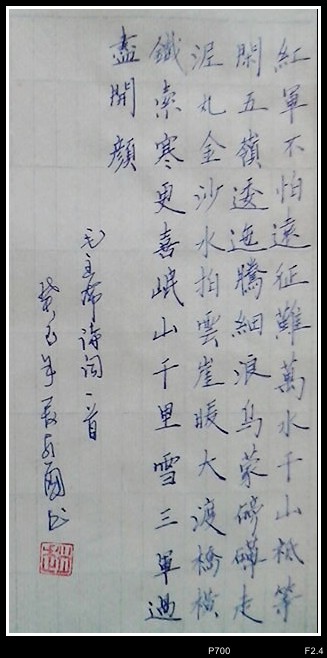 紅軍不怕遠征難萬水千山衹等
閑五嶺逶迤騰細浪烏蒙磅礴走
泥丸金沙水拍雲崖暖大渡橋橫
鐵索寒更喜岷山千里雪三軍過
盡開顔
毛主席诗词一首
癸巳年
P700 F2.4